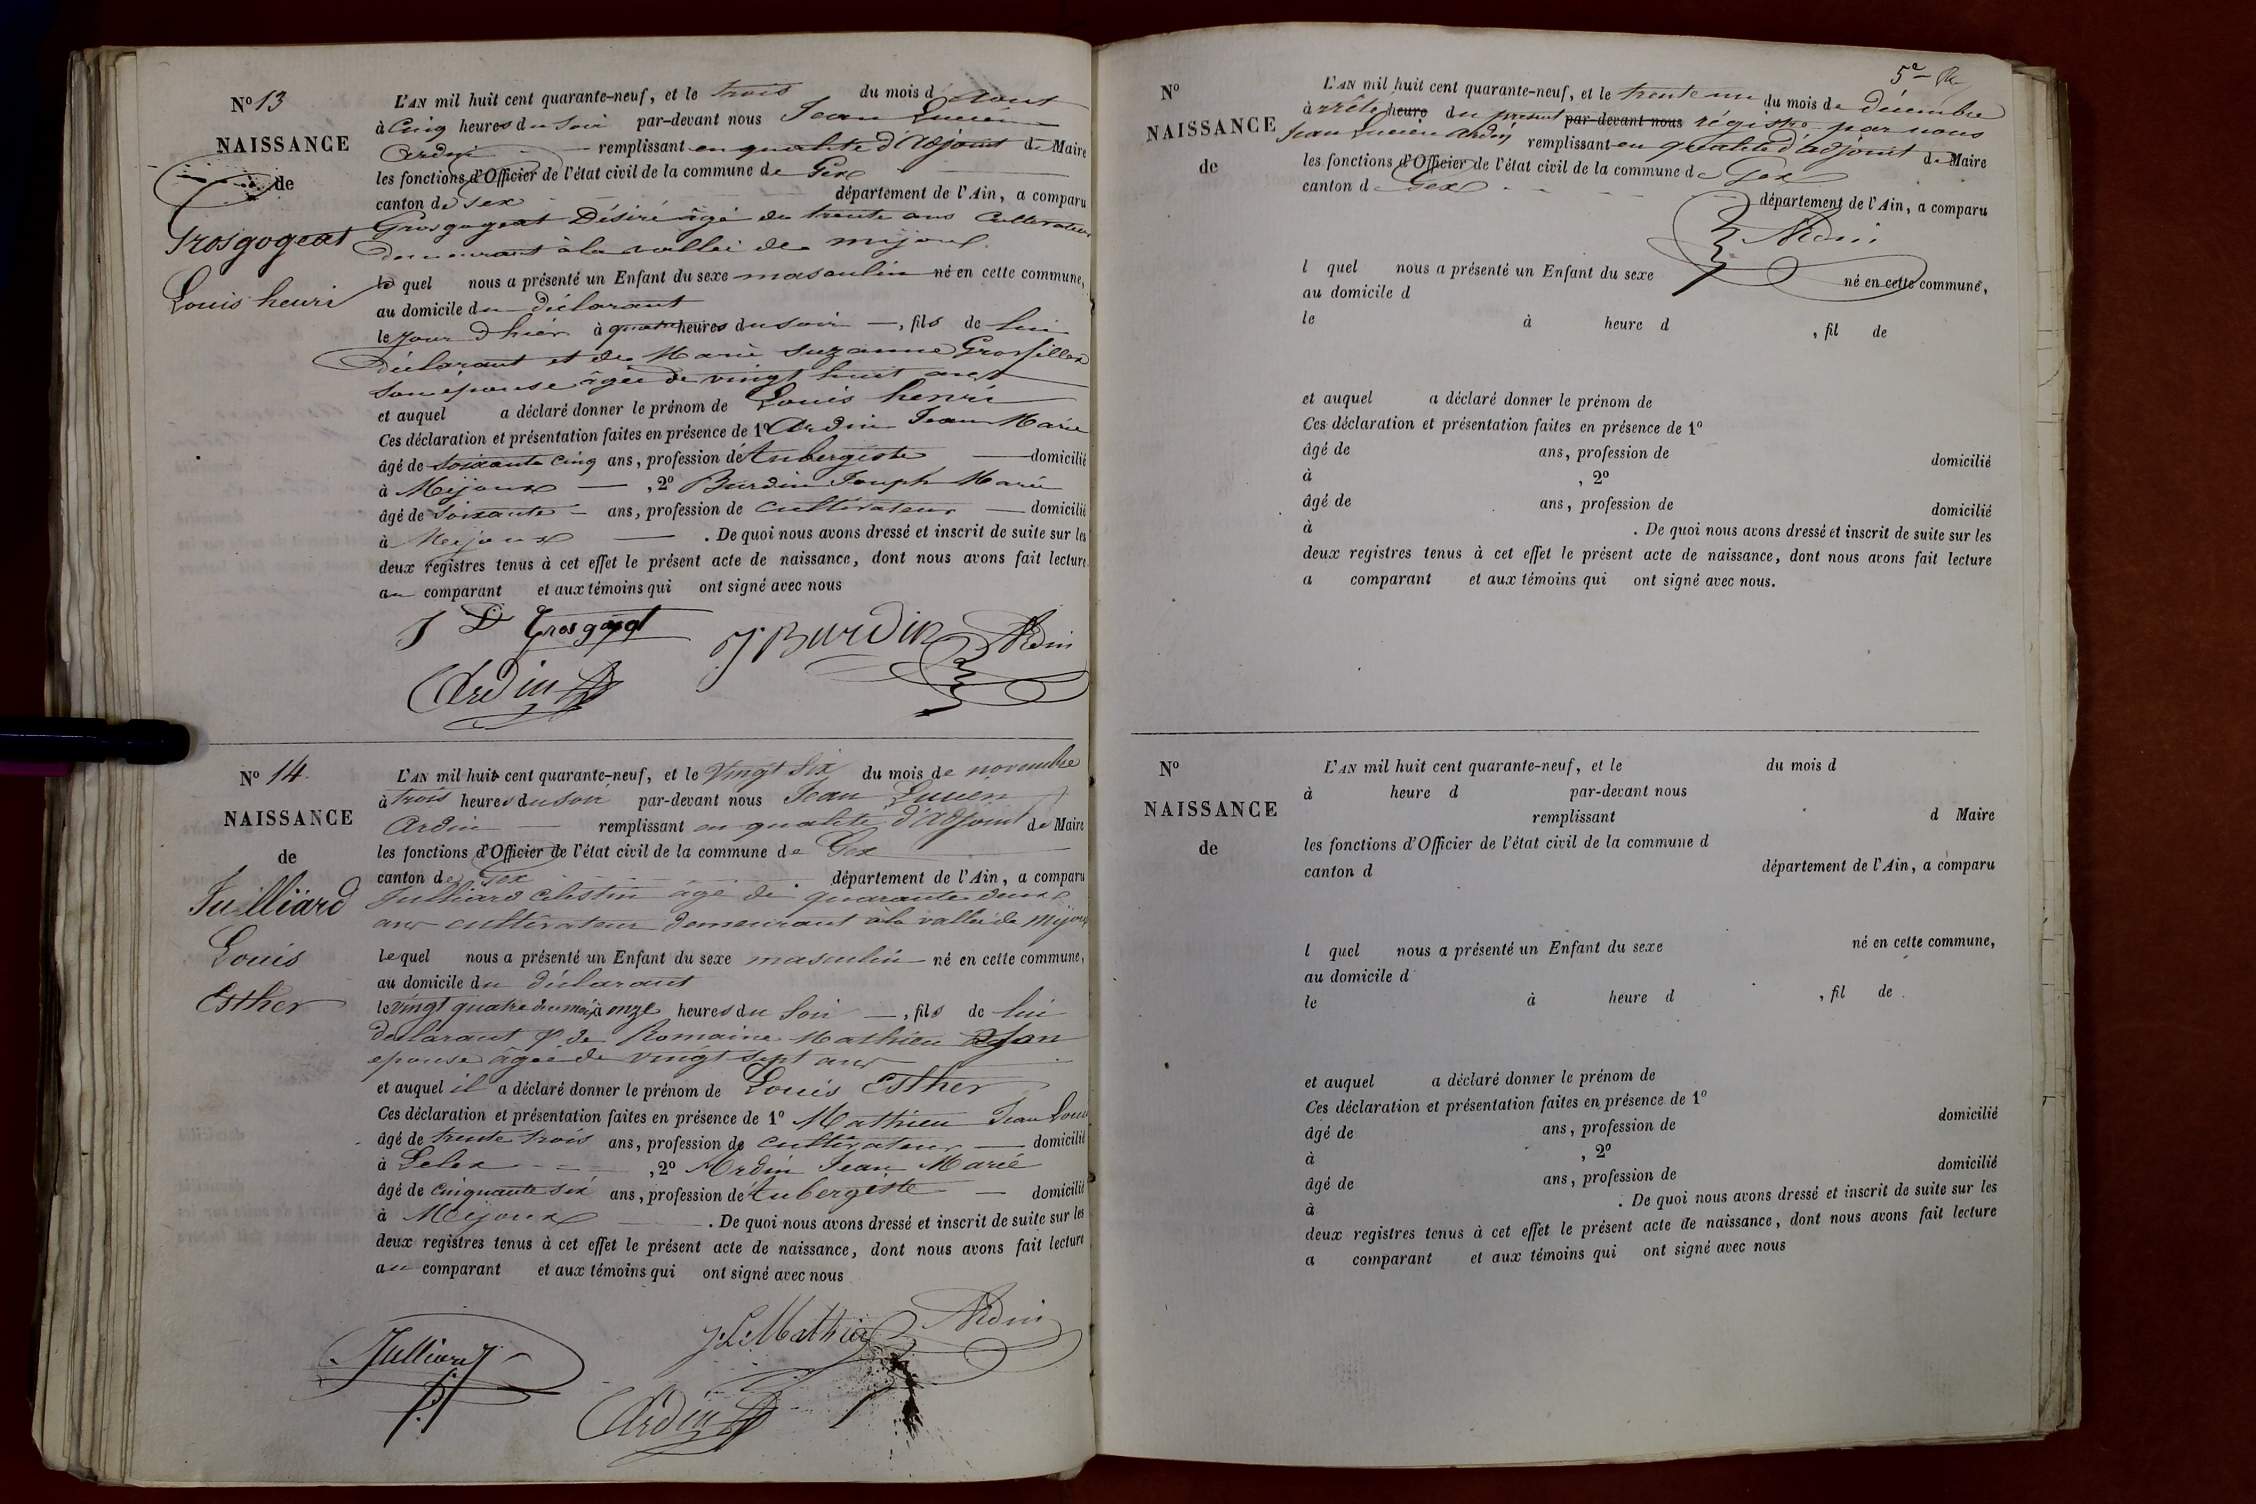 N° 13
NAISSANCE
de
Grosgogeat
Louis henri
L'AN mil huit cent quarante-neuf, et le trois du mois d'Aout
à Cinq heures du Soir par-devant nous Jean Lucien
Ardin remplissant en qualité d'Adjoint de Maire
les fonctions d'Officier de l'état civil de la commune de Gex
canton de Gex département de l'Ain, a comparu
Grosgogeat Désiré âgé de trente ans Cultivateur
demeurant à la vallée de mijoux
le quel nous a présenté un Enfant du sexe masculin né en cette commune,
au domicile du déclarant
le jour d'hier à quatre heures du soir, fils de lui
déclarant et de Marie Suzanne Grosfillex
son épouse âgée de vingt huit ans
et auquel a déclaré donner le prénom de Louis henri
Ces déclaration et présentation faites en présence de 1° Ardin Jean Marie
âgé de soixante cinq ans, profession d'Aubergiste domicilié
à Mijoux, 2° Burdin Joseph Marie
âgé de soixante ans, profession de cultivateur domicilié
à Mijoux. De quoi nous avons dressé et inscrit de suite sur les
deux registres tenus à cet effet le présent acte de naissance, dont nous avons fait lecture
au comparant et aux témoins qui ont signé avec nous
J D Grosgogeat J Burdin Ardin
Ardin
N° 14.
NAISSANCE
de
Juilliard
Louis
Esther
L'AN mil huit cent quarante-neuf, et le Vingt Six du mois de novembre
à trois heures du soir par-devant nous Jean Lucien
Ardin remplissant en qualité d'Adjoint de Maire
les fonctions d'Officier de l'état civil de la commune de Gex
canton de Gex département de l'Ain, a comparu
Julliard Célestin âgé de quarante deux
ans cultivateur demeurant à la vallée de Mijoux
le quel nous a présenté un Enfant du sexe masculin né en cette commune,
au domicile du déclarant
le vingt quatre du mois à onze heures du Soir, fils de lui
declarant & de Romaine Mathieu Son
epouse âgée de vingt sept ans
et auquel il a déclaré donner le prénom de Louis Esther
Ces déclaration et présentation faites en présence de 1° Mathieu Jean Louis
âgé de trente trois ans, profession de cultivateur domicilié
à Lelex, 2° Ardin Jean Marie
âgé de cinquante six ans, profession d'Aubergiste domicilié
à Mijoux. De quoi nous avons dressé et inscrit de suite sur les
deux registres tenus à cet effet le présent acte de naissance, dont nous avons fait lecture
au comparant et aux témoins qui ont signé avec nous
Julliard J L Mathieu Ardin
Ardin
5e
N°
NAISSANCE
de
L'AN mil huit cent quarante-neuf, et le trente un du mois de décembre
à rrêté heure du présent par-devant nous régistre par nous
Jean Lucien Ardin remplissant en qualité d'adjoint de Maire
les fonctions d'Officier de l'état civil de la commune de Gex
canton de Gex
département de l'Ain, a comparu
Ardin
l quel nous a présenté un Enfant du sexe né en cette commune,
au domicile d
le à heure d , fil de
et auquel a déclaré donner le prénom de
Ces déclaration et présentation faites en présence de 1°
âgé de ans, profession de domicilié
à , 2°
âgé de ans, profession de domicilié
à . De quoi nous avons dressé et inscrit de suite sur les
deux registres tenus à cet effet le présent acte de naissance, dont nous avons fait lecture
a comparant et aux témoins qui ont signé avec nous.
N°
NAISSANCE
de
L'AN mil huit cent quarante-neuf, et le du mois d
à heure d par-devant nous
remplissant d Maire
les fonctions d'Officier de l'état civil de la commune d
canton d département de l'Ain, a comparu
l quel nous a présenté un Enfant du sexe né en cette commune,
au domicile d
le à heure d , fil de
et auquel a déclaré donner le prénom de
Ces déclaration et présentation faites en présence de 1°
âgé de ans, profession de domicilié
à , 2°
âgé de ans, profession de domicilié
à . De quoi nous avons dressé et inscrit de suite sur les
deux registres tenus à cet effet le présent acte de naissance, dont nous avons fait lecture
a comparant et aux témoins qui ont signé avec nous